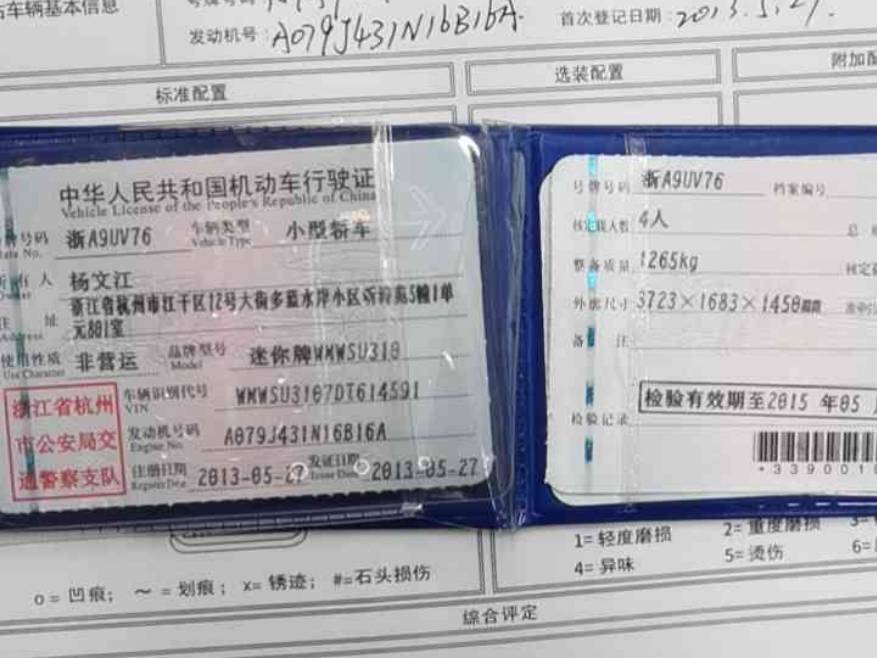 车辆基本信息
发动机号：A079J431N16B16A
首次登记日期：2013.5.27.
标准配置
选装配置
附加配
中华人民共和国机动车行驶证
Vehicle License of the People's Republic of China
号码 浙A9UV76 车辆类型 小型轿车
Vehicle Type
有人 杨文江
浙江省杭州市江干区12号大街多蓝水岸小区听涛苑5幢1单
址
元801室
使用性质 非营运 品牌型号 迷你牌WMWSU310
Use Character Model
浙江省杭州
市公安局交
通警察支队
车辆识别代号 WMWSU3107DT614591
VIN
发动机号码 A079J431N16B16A
Engine No.
注册日期 2013-05-27 发证日期 2013-05-27
Register Date Issue Date
号牌号码 浙A9UV76 档案编号
核定载人数 4人 总
整备质量 1265kg 核定
外廓尺寸 3723×1683×1450mm
备 注
检验记录 检验有效期至2015 年05
*3390018
o= 凹痕； ～= 划痕； x= 锈迹； #=石头损伤
1= 轻度磨损 2= 重度磨损 3=
4= 异味 5= 烫伤 6=
综合评定